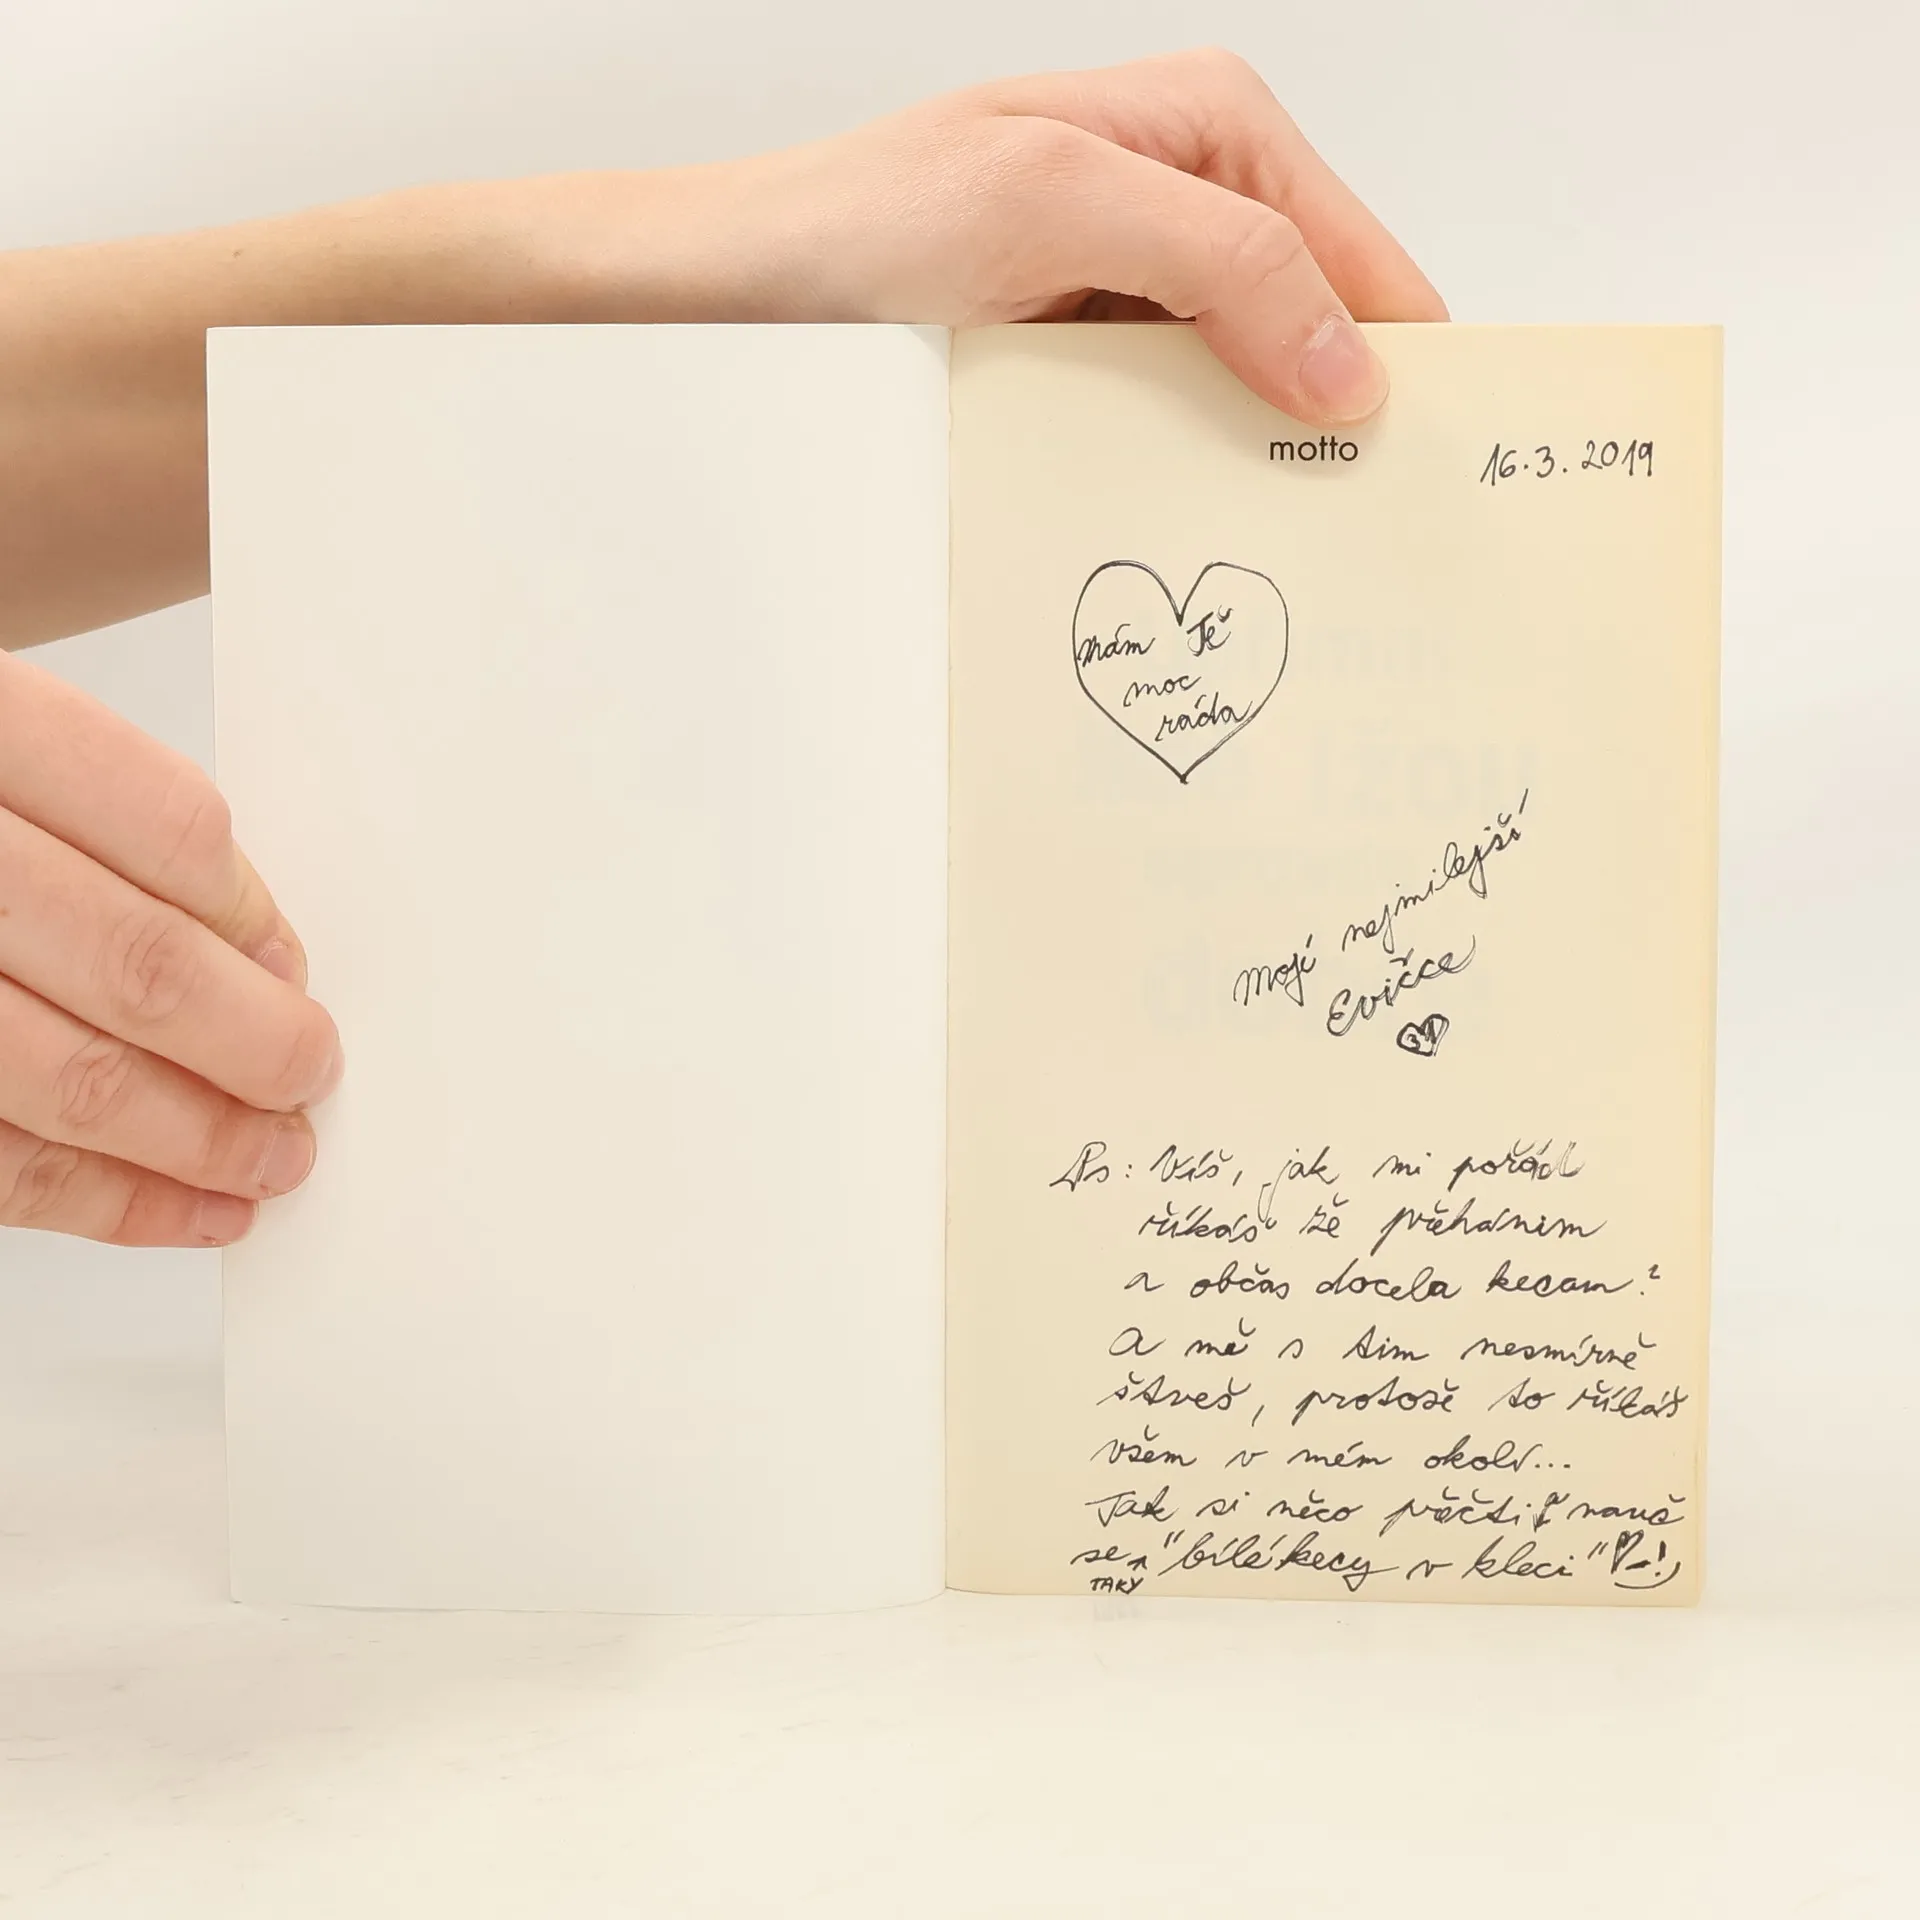 motto
16.3.2019
Mám Tě
moc
ráda
Mojí nejmilejší
Evičce
Ps: Víš, jak mi pořád
říkáš že přeháním
a občas docela kecam?
A mě s tim nesmírně
štveš, protože to říkáš
všem v mém okolí...
Tak si něco přečti a nauč
se "bílé kecy v kleci"
TAKY